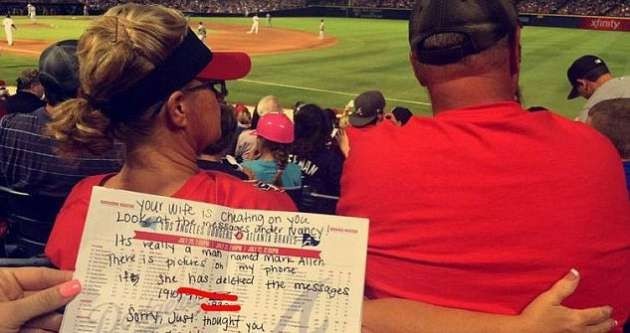 xfinity
YOUR Wife is cheating on you
LOOK at the messages under Nancy
LOS ANGELES DODGERS @ ATLANTA BRAVES
Its really a man named Mark Allen
There is pictures on my phone
if she has deleted the messages
Sorry, just thought you